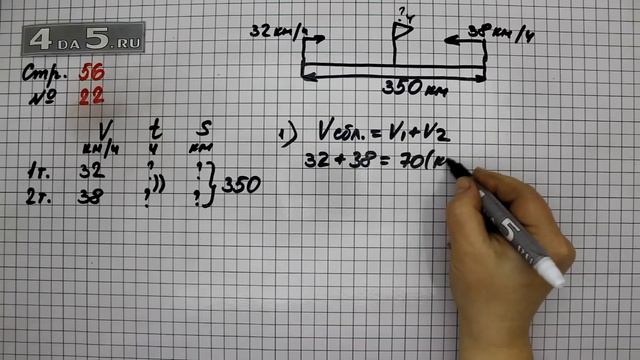 4 DA 5.RU
Стр. 56
№ 22
32 км/ч
? ч
38 км/ч
350 км
V t S
км/ч ч км
1т. 32 ? ? } 350
2т. 38 ? ?
1) Vсбл. = V₁ + V₂
32 + 38 = 70 (к